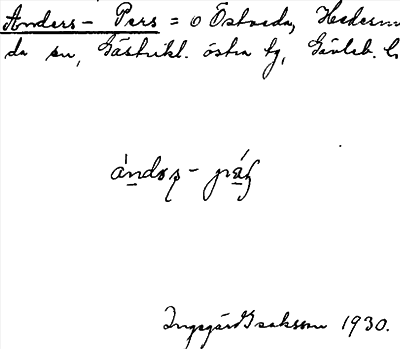 Anders- Pers = o Östveda, Hedesun
da sn, Gästrikl. östra tg, Gävleb. l.
Ingegärd Isaksson 1930.